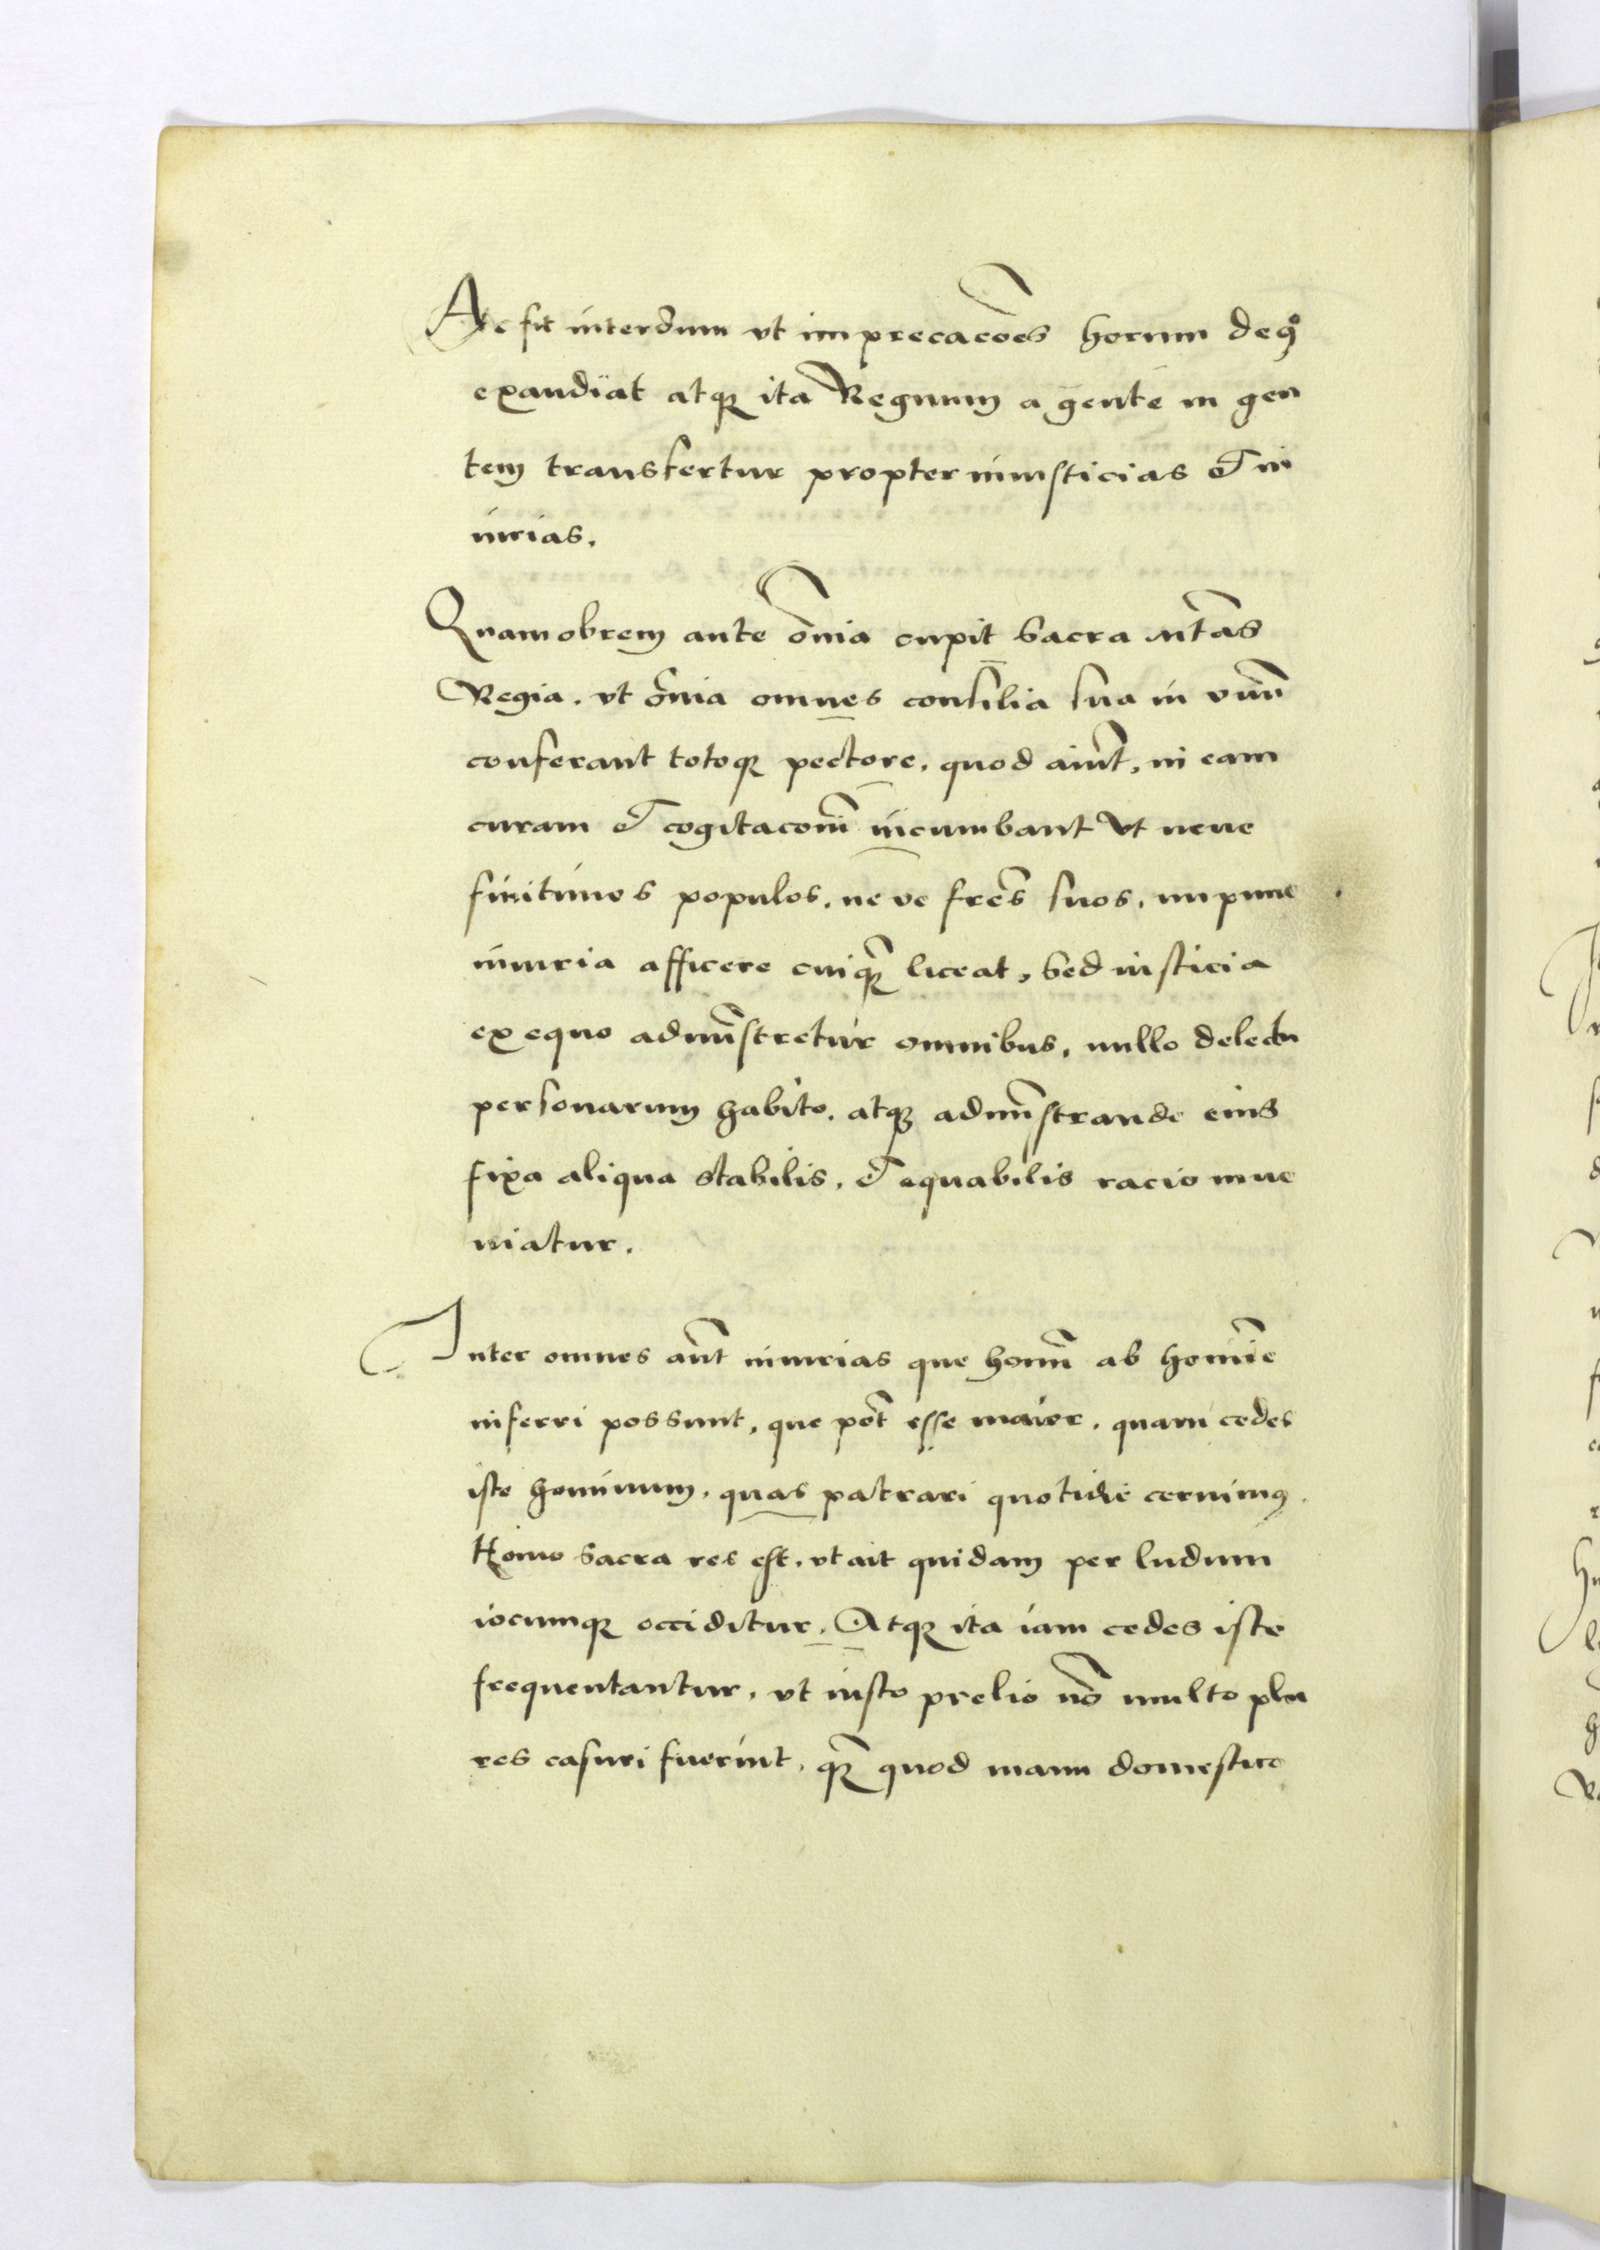 Ac fit interdum vt imprecacōes horum deꝯ
exaudiat atqꝫ ita Regnum a gente in gen
tem transfertur propter iniusticias et in
iurias.
Quamobrem ante ōnia cupit Sacra Mtās
Regia. vt ōnia omnes consilia sua in vnū
conferant totoqꝫ pectore. quod aiūt, in eam
curam et cogitacōnē incumbant vt neue
finitimos populos. ne ve frēs suos. impune
iniuria afficere cuiqꝫ̄ liceat, Sed iusticia
ex equo admīstretur omnibus. nullo delectu
personarum habito. atqꝫ admīstrande eius
fixa aliqua stabilis. et equabilis racio inue
niatur.
Inter omnes aūt iniurias que homī ab homīe
inferri possunt, que pōt esse maior. quam cedes
iste hominum. quas patrari quotidie cernimꝯ.
Homo sacra res est. vt ait quidam per ludum
iocumqꝫ occiditur. Atqꝫ ita iam cedes iste
frequentantur. vt iusto prelio nō multo plu
res casuri fuerint. qꝫ̄ quod manu domestica